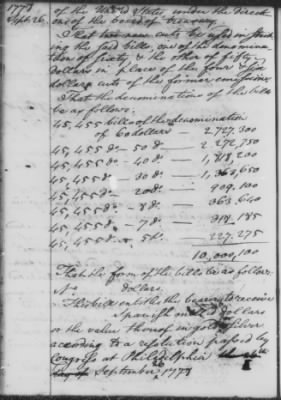 1778
Sept. 26.
of the United States under the direct-
ion of the board of treasury.
That two new cuts be used in strik-
ing the sd bills, one of the denomina-
tion of sixty & the other of fifty
dollars in place of the four & five
dollar cuts of the former emissions.
That the denominations of the bills
be as follows.
45,455 bills of the denomination
of 60 dollars — 2,727,300
45,455 do — 50 do — 2,272,750
45,455 do — 40 do — 1,818,200
45,455 d — 30 do — 1,363,650
45,455 do — 20 do — 909,100
45,455 do — 8 do — 363,640
45,455 do — 7 do — 318,185
45,455 do — 5 do — 227,275
10,000,100
That the form of the bills be as follows.
No dollars.
This bill entitles the bearer to receive
Spanish milled dollars
or the value thereof in gold or silver
according to a resolution passed by
Congress at Philadelphia
September 26th 1778